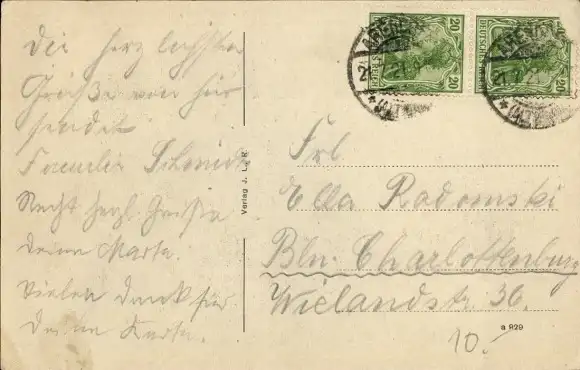 Die herzlichsten
Grüße von hier
sendet
Familie Schmidt
Recht herzl. Grüße
Deine Marta.
Vielen Dank für
Deine Karte.
Verlag J. L. R.
20
DEUTSCHES REICH
20
20
DEUTSCHES REICH
20
Frl.
Ella Radomski
Bln. Charlottenburg
Wielandstr. 36.
10.-
a 929